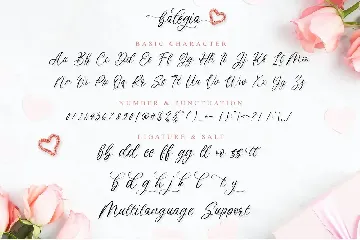 balegia
BASIC CHARACTER
Aa Bb Cc Dd Ee Ff Gg Hh Ii Jj Kk Ll Mm
Nn Oo Pp Qq Rr Ss Tt Uu Vv Ww Xx Yy Zz
NUMBER & PUNCTUATION
LIGATURE & SALT
bb dd ee ff gg ll oo ss tt
b d g h j k l t y
Multilanguage Support